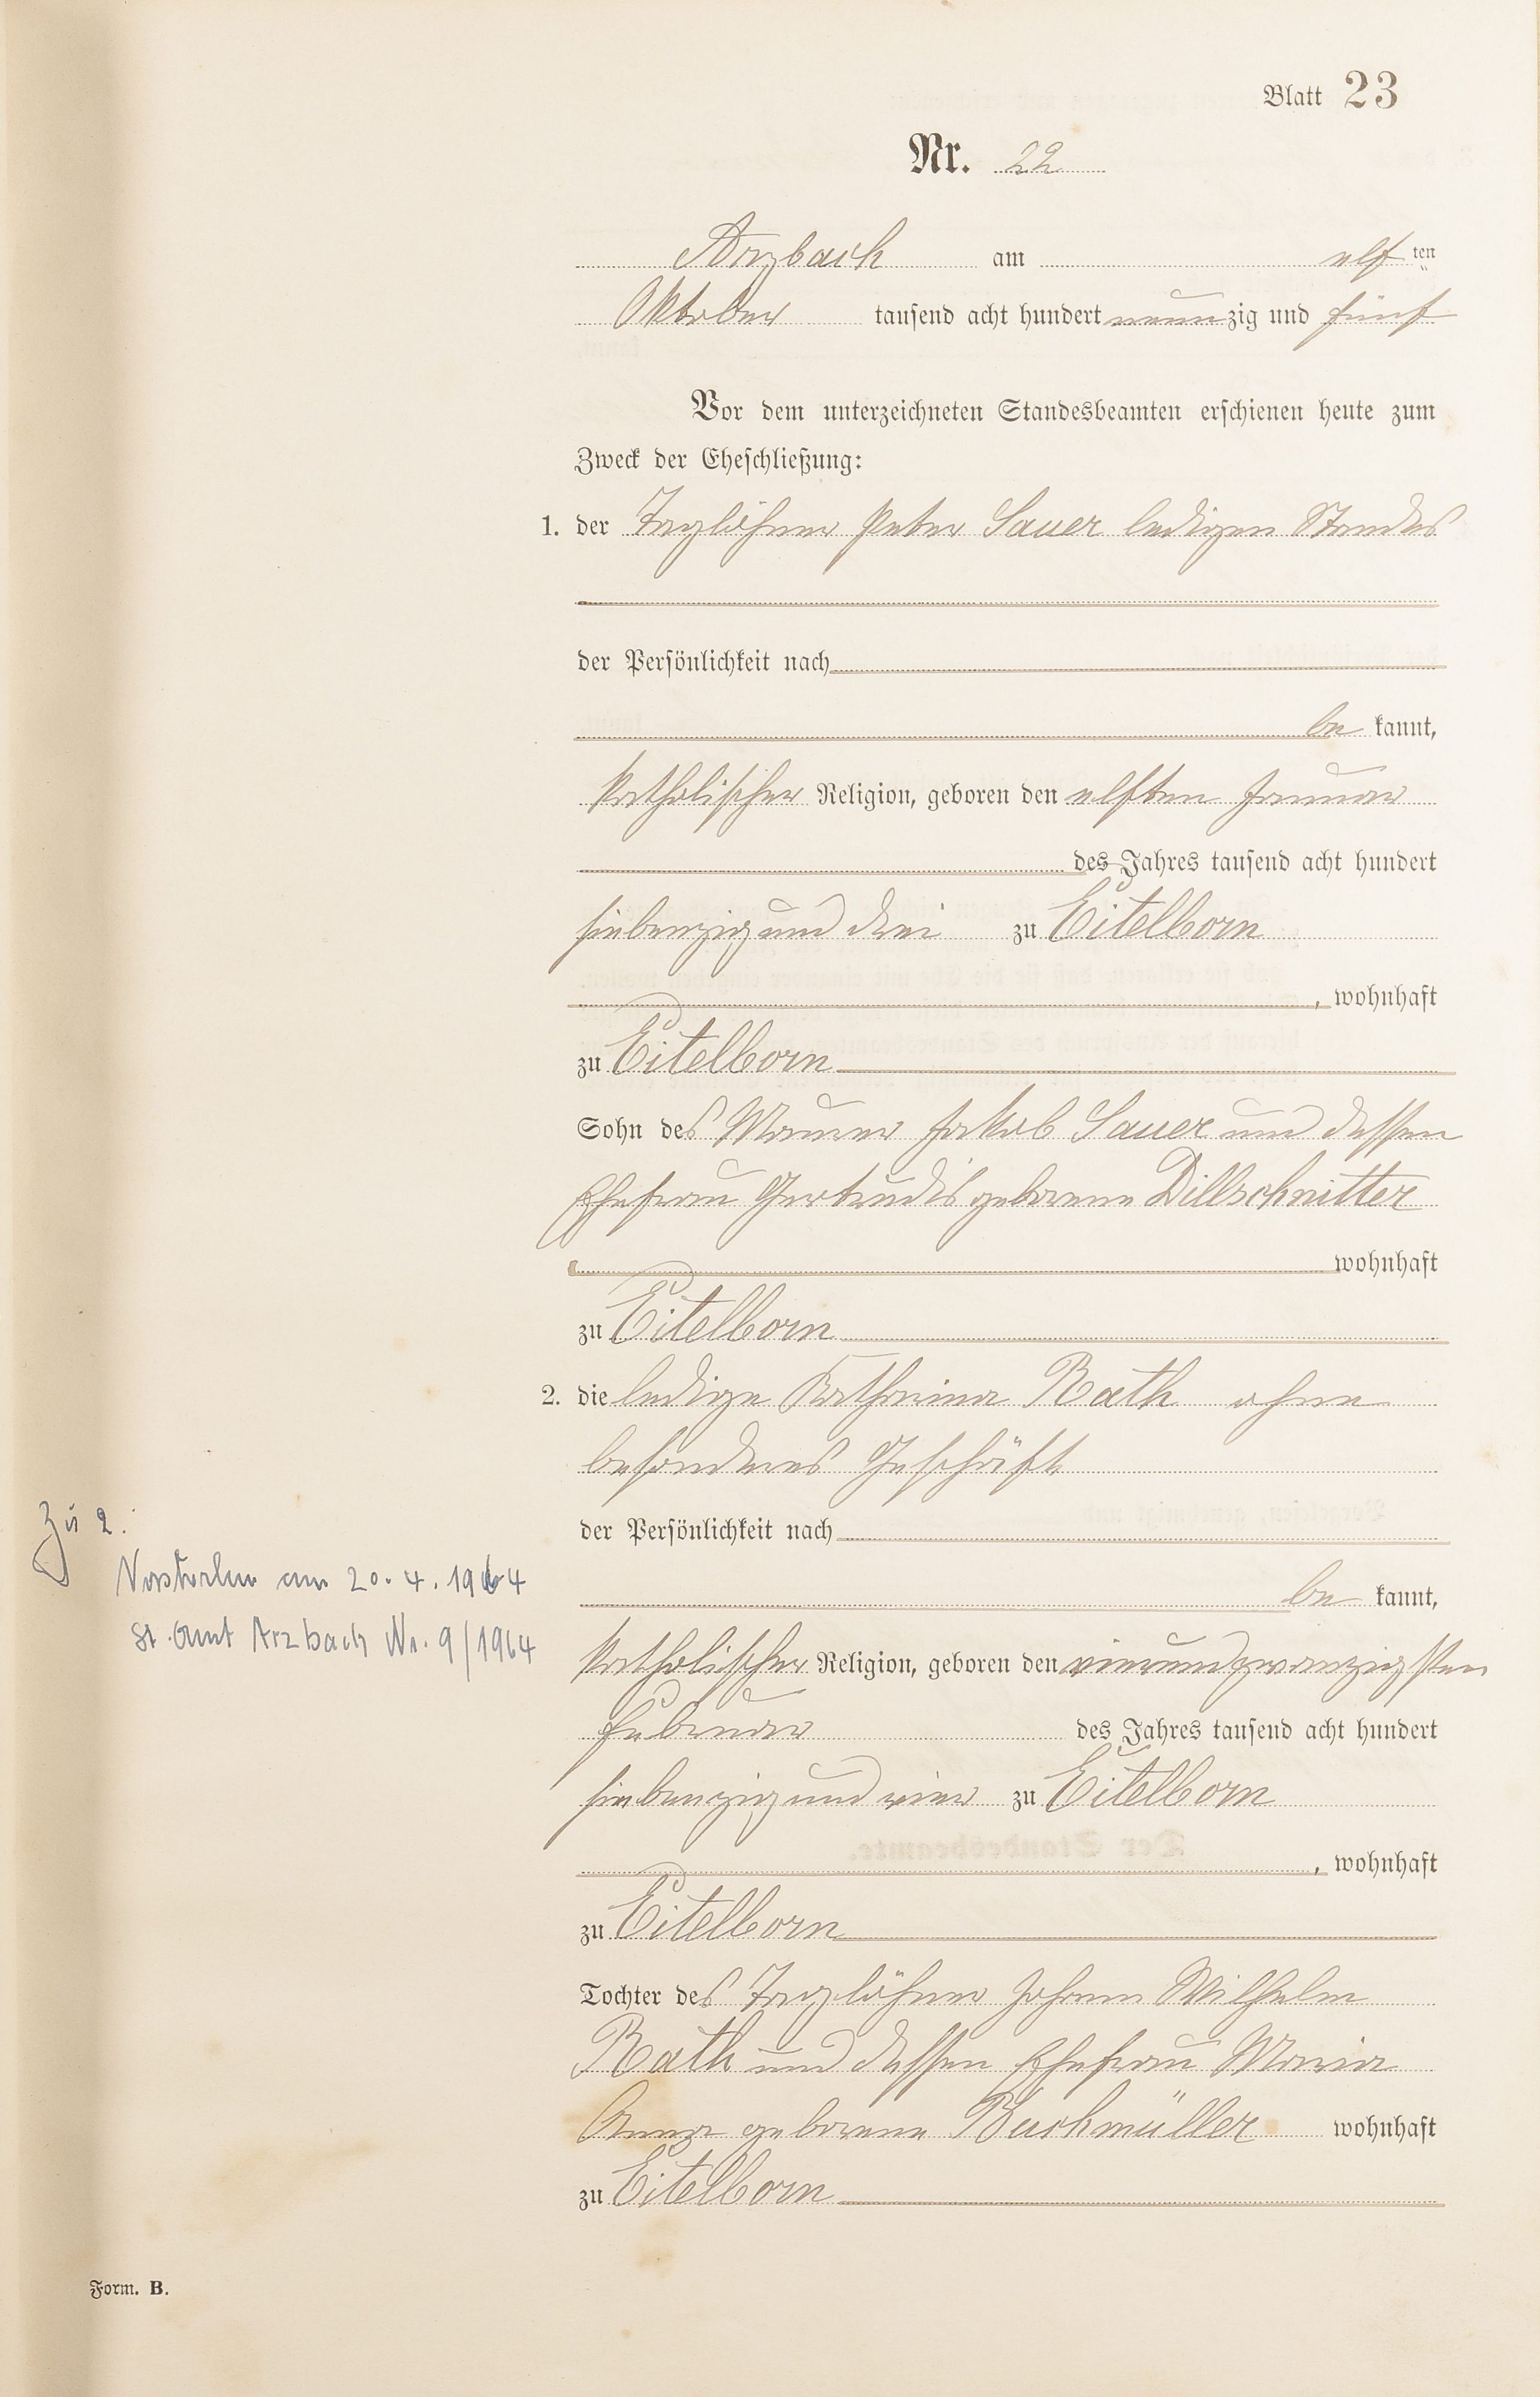 Blatt 23
Nr. 22
Arzbach am elf ten
Oktober tausend acht hundert neunzig und fünf
Vor dem unterzeichneten Standesbeamten erschienen heute zum
Zweck der Eheschließung:
1. der Taglöhner Peter Sauer ledigen Standes
der Persönlichkeit nach
be kannt,
katholischer Religion, geboren den elften Januar
des Jahres tausend acht hundert
siebenzig und drei zu Eitelborn
, wohnhaft
zu Eitelborn
Sohn des Maurer Jakob Sauer und dessen
Ehefrau Gertrudis geborene Dillschnitter
wohnhaft
zu Eitelborn
2. die ledige Katharina Rath ohne
besonderes Geschäft
der Persönlichkeit nach
be kannt,
katholischer Religion, geboren den vierundzwanzigsten
Februar des Jahres tausend acht hundert
siebenzig und vier zu Eitelborn
, wohnhaft
zu Eitelborn
Tochter des Taglöhner Johann Wilhelm
Rath und dessen Ehefrau Maria
Anna geborene Buchmüller wohnhaft
zu Eitelborn
Zu 2.
Verstorben am 20.4.1964
St. Amt Arzbach Nr. 9/1964
Form. B.